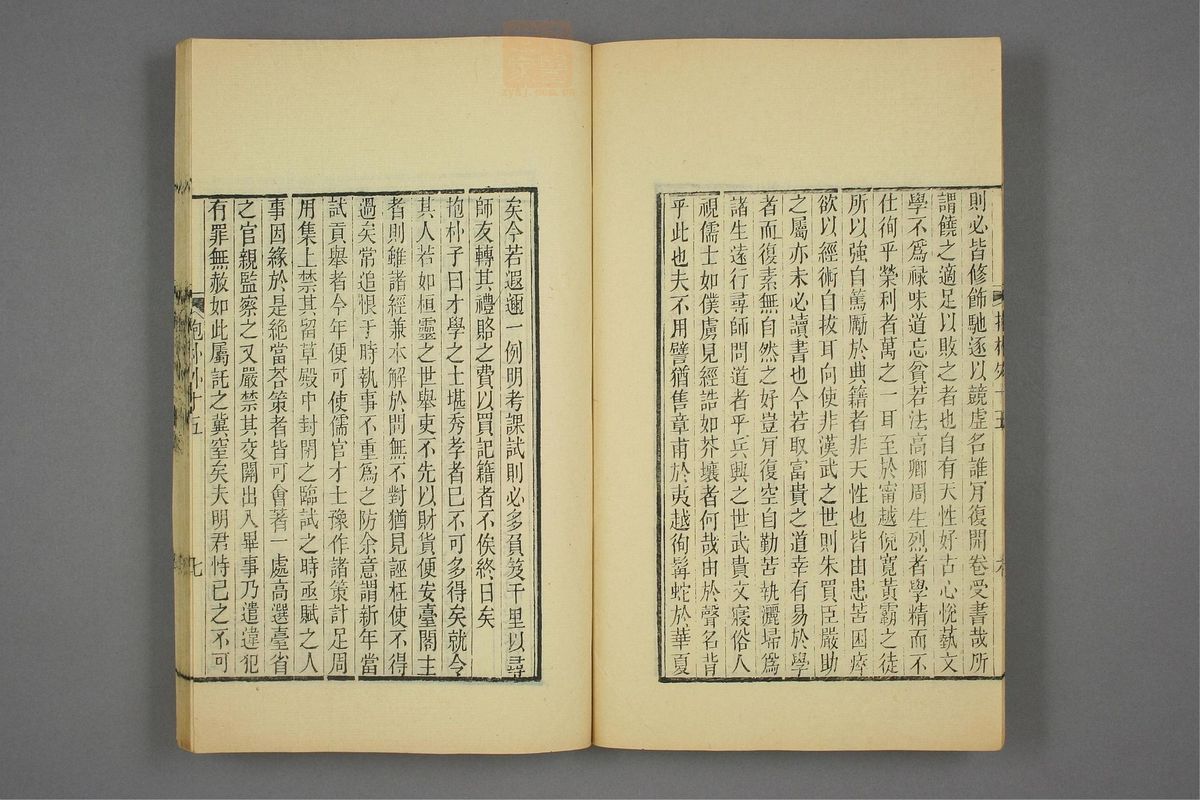 則必皆修飾馳逐以競虛名誰肎復開卷受書哉所
謂饒之適足以敗之者也自有天性好古心悅藝文
學不爲祿味道忘貧若法高卿周生烈者學精而不
仕徇乎榮利者萬之一耳至於甯越倪寬黃霸之徒
所以強自篤勵於典籍者非天性也皆由患苦困瘁
欲以經術自拔耳向使非漢武之世則朱買臣嚴助
之屬亦未必讀書也今若取富貴之道幸有易於學
者而復素無自然之好豈肎復空自勤苦執灑埽爲
諸生遠行尋師問道者乎兵興之世武貴文寢俗人
視儒士如僕虜見經誥如芥壤者何哉由於聲名背
乎此也夫不用譬猶售章甫於夷越徇髯蛇於華夏
矣今若遐邇一例明考課試則必多負笈千里以尋
師友轉其禮賂之費以買記籍者不俟終日矣
抱朴子曰才學之士堪秀孝者已不可多得矣就令
其人若如桓靈之世舉吏不先以財貨便安臺閣主
者則雖諸經兼本解於問無不對猶見誣枉使不得
過矣常追恨于時執事不重爲之防余意謂新年當
試貢舉者今年便可使儒官才士豫作諸策計足周
用集上禁其留草殿中封閉之臨試之時亟賦之人
事因緣於是絕當荅策者皆可會著一處高選臺省
之官親監察之又嚴禁其交關出入畢事乃遣違犯
有罪無赦如此屬託之冀窒矣夫明君恃己之不可
抱朴外十五
七